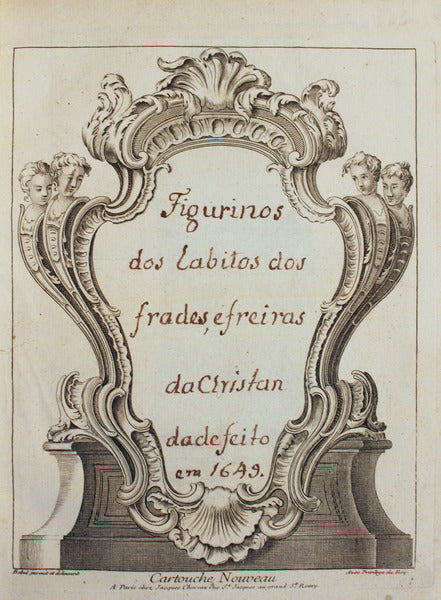 Figurinos
dos habitos dos
frades, e freiras
da Christan
dade feito
em 1649.
Babel invenit et delineavit
Avec Privilege du Roy
Cartouche Nouveau
A Paris chez Jacques Chereau Rue St. Jacques au grand St. Remy